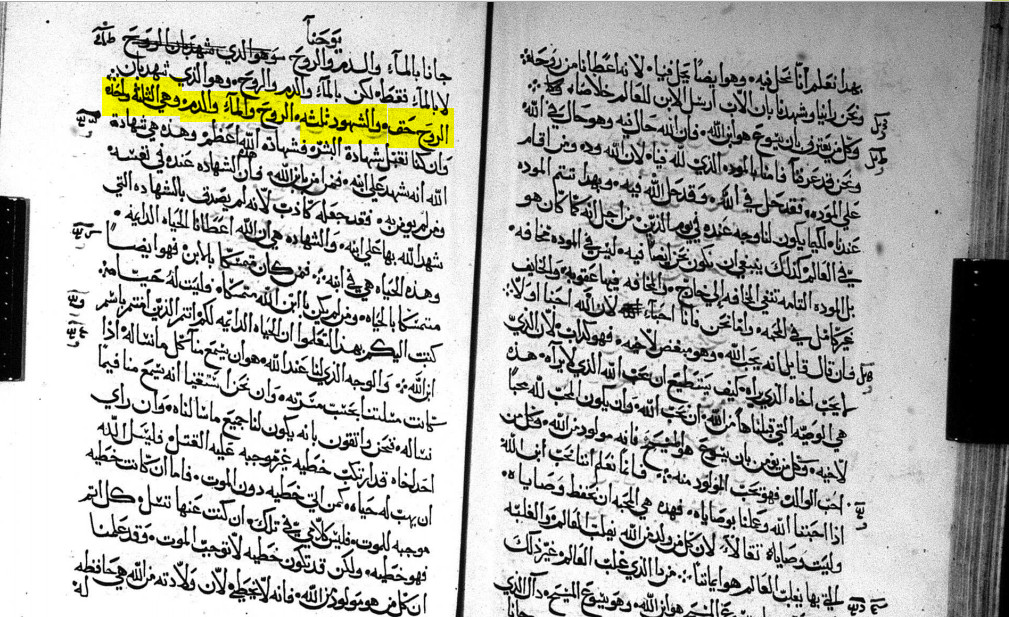 بهذا نعلم أنا نحل فيه وهو ايضاً يحل فينا لانه اعطانا من روحه
ونحن راينا وشهدنا بان الاب ارسل الابن للعالم خلاصاً
وكل من يعترف بان يسوع هو ابن الله فان الله حال فيه وهو حال في الله
ونحن قد عرفنا وآمنا بالموده الذي لله فينا لان الله ود ومن اقام
على الموده فقد حل في الله وقد حل الله فيه وبهذا تتم الموده
عندنا لكيما يكون لنا وجه عنده في يوم الدين من اجل انه كما كان هو
في العالم كذلك ينبغي ان نكون نحن ايضاً فيه ليس في الموده مخافه
بل الموده التامه تنفي المخافه الى خارج والمخافه فيها عقوبه والخايف
غير كامل في المحبه وانما نحن فانا احباء لان الله احبنا اولاً
فان قال قايل انه يحب الله وهو مبغض لاخيه فهو كذاب لان الذي
لا يحب اخاه الذي يراه كيف يستطيع ان يحب الله الذي لا يراه هذه
هي الوصيه التي قبلناها من الله ان نحب الله وان يكون المحب لله محباً
لاخيه وكل من يومن بان يسوع هو المسيح فانه مولود من الله وكل من
احب الوالد فهو يحب المولود منه فانا نعلم اننا نحب ابن الله
اذا احببنا الله وعملنا بوصاياه فهذه هي المحبه ان نحفظ وصاياه
وليست وصاياه ثقالاً لان كل من ولد من الله يغلب العالم والغلبه
التي بها يغلب العالم هو ايماننا من ذا الذي غلب العالم غير ذلك
هو ابن الله وهو يسوع المسيح ذاك الذي
جانا
يوحنا
جانا بالماء والدم والروح وهو الذي شهد بان الروح
لا بالماء فقط لكن بالماء والدم والروح وهو الذي شهد بان
الروح حق والشهود ثلثه الروح والماء والدم وهي الثلثه واحد
وان كنا نقبل شهادة البشر فشهادة الله اعظم وهذه هي شهادة
الله انه شهد على ابنه فمن امن بابن الله فان الشهاده عنده في نفسه
ومن لم يومن به فقد جعله كاذباً لانه لم يصدق بالشهاده التي
شهد الله بها على ابنه والشهاده هي ان الله اعطانا الحياه الدايمه
وهذه الحياه هي في ابنه فمن كان متمسكاً بالابن فهو ايضاً
متمسكاً بالحياه ومن لم يكن بابن الله متمسكاً فليست له حياه
كتبت اليكم بهذا لتعلموا ان الحياه الدايمه لكم انتم الذين امنتم باسم
ابن الله والوجه الذي لنا عند الله هو ان يسمع منا كل ما نساله اذا
كانت مسلتنا بحسب مسرته وان نحن استيقنا انه يسمع منا فيما
نساله فنحن واثقون بانه يكون لنا جميع ما سالناه وان راي
احد اخاه قد ارتكب خطيه غير موجبه عليه القتل فليسل الله
ان يهب له حياه كمن اتى خطيه دون الموت فاما ان كانت خطيه
موجبه للموت فليس لاجل تلك ان كنت عنها تسل كل اثم
فهو خطيه ولكن قد تكون خطيه لا توجب الموت وقد علمنا
ان كل من هو مولود من الله فانه لا يخطي لان ولادته من الله هي حافظه
له